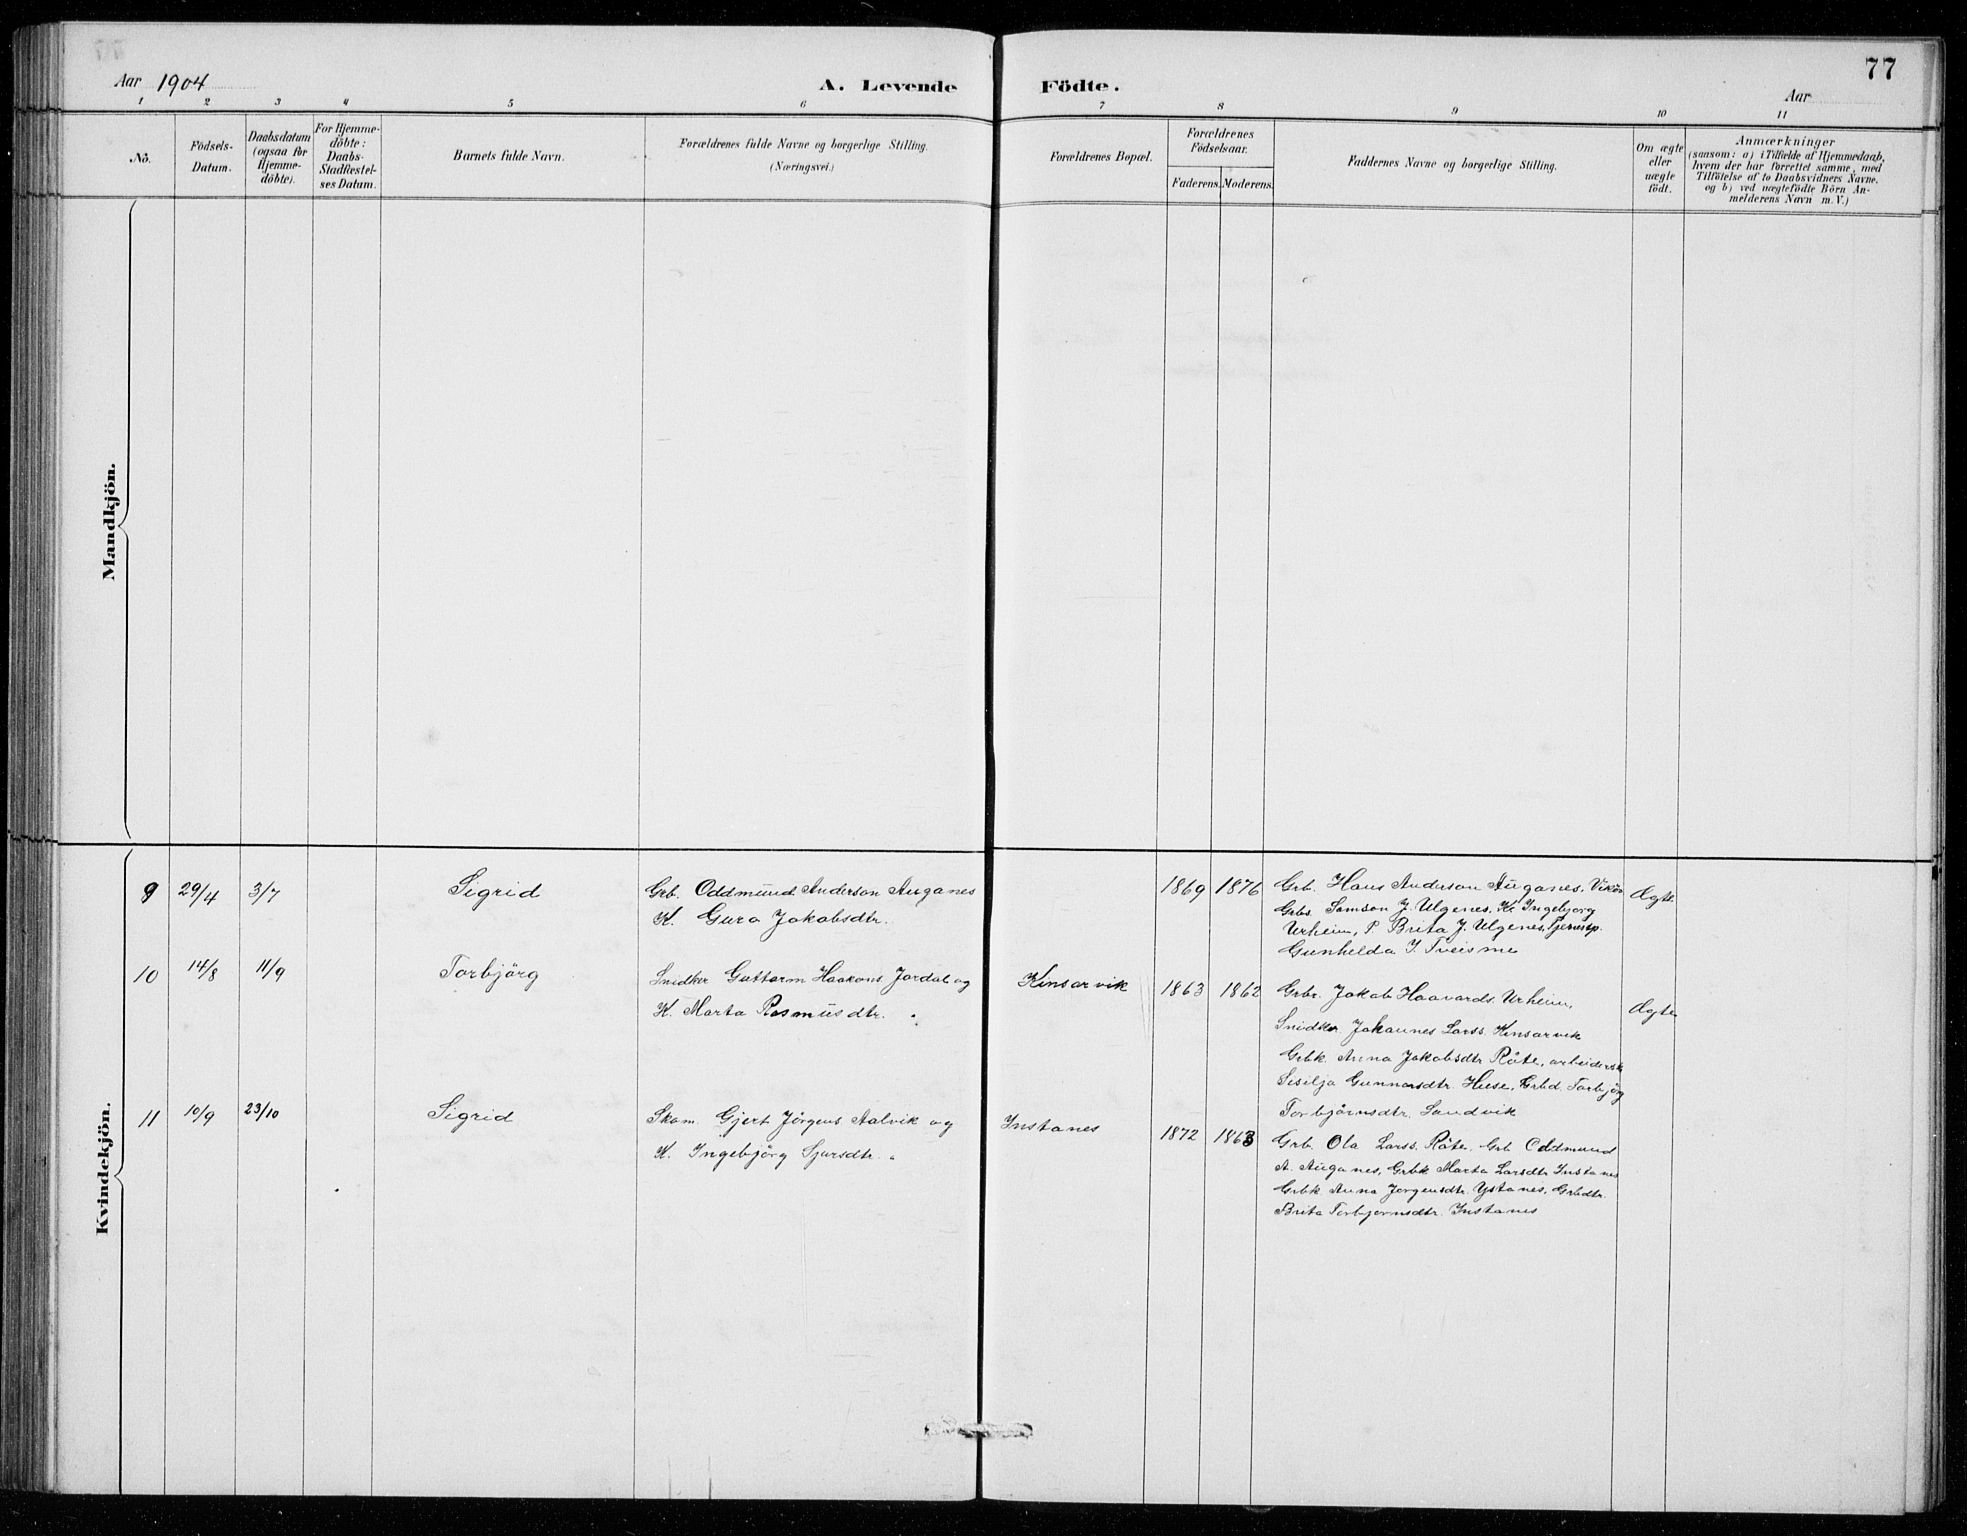 77
Aar 1904
A. Levende Födte.
Aar
1 2 3 4 5 6 7 8 9 10 11
No.
Födsels-
Datum.
Daabsdatum
(ogsaa for
Hjemme-
döbte).
For Hjemme-
döbte:
Daabs-
Stadfæstel-
ses Datum.
Barnets fulde Navn.
Forældrenes fulde Navne og borgerlige Stilling.
(Næringsvei.)
Forældrenes Bopæl.
Forældrenes
Födselsaar.
Faderens. Moderens.
Faddernes Navne og borgerlige Stilling.
Om ægte
eller
uægte
födt.
Anmærkninger
(saasom: a) i Tilfælde af Hjemmedaab,
hvem der har forrettet samme, med
Tilföielse af to Daabsvidners Navne.
og b) ved uægtefödte Börn An-
melderens Navn m. V.)
Mandkjön.
Kvindekjön.
9 29/4 3/7 Sigrid
Grb. Oddmund Anderson Auganes
K. Guro Jakobsdtr.
1869 1876
Grb. Hans Anderson Auganes, Vikör
Grbs. Samson J. Ulgenes, K. Ingebjorg
Urheim, P. Brita J. Ulgenes, Tjenestp.
Gunhilda J. Tveisme
Ægte
10 14/8 11/9 Torbjörg
Snidker Guttorm Haakons. Jordal og
K. Marta Rasmusdtr.
Kinsarvik
1863 1862
Grbr. Jakob Haavards. Urheim,
Snidker. Johannes Larss. Kinsarvik
Grbk. Anna Jakobsdtr Råte, arbeidersk
Sesilja Gunnarsdtr. Huse, Grbd. Torbjörg
Torbjörnsdtr. Sandvik
Ægte
11 10/9 23/10 Sigrid
Skom. Gjert Jörgens Aalvik og
K. Ingebjörg Sjursdtr. "
Instanes
1872 1863
Grb. Ola Larss. Råte, Grb. Oddmund
A. Auganes, Grbk Marta Larsdtr Instanes
Grbk. Anna Jorgensdtr. Ystanes, Grbdtr.
Brita Torbjornsdtr. Instanes